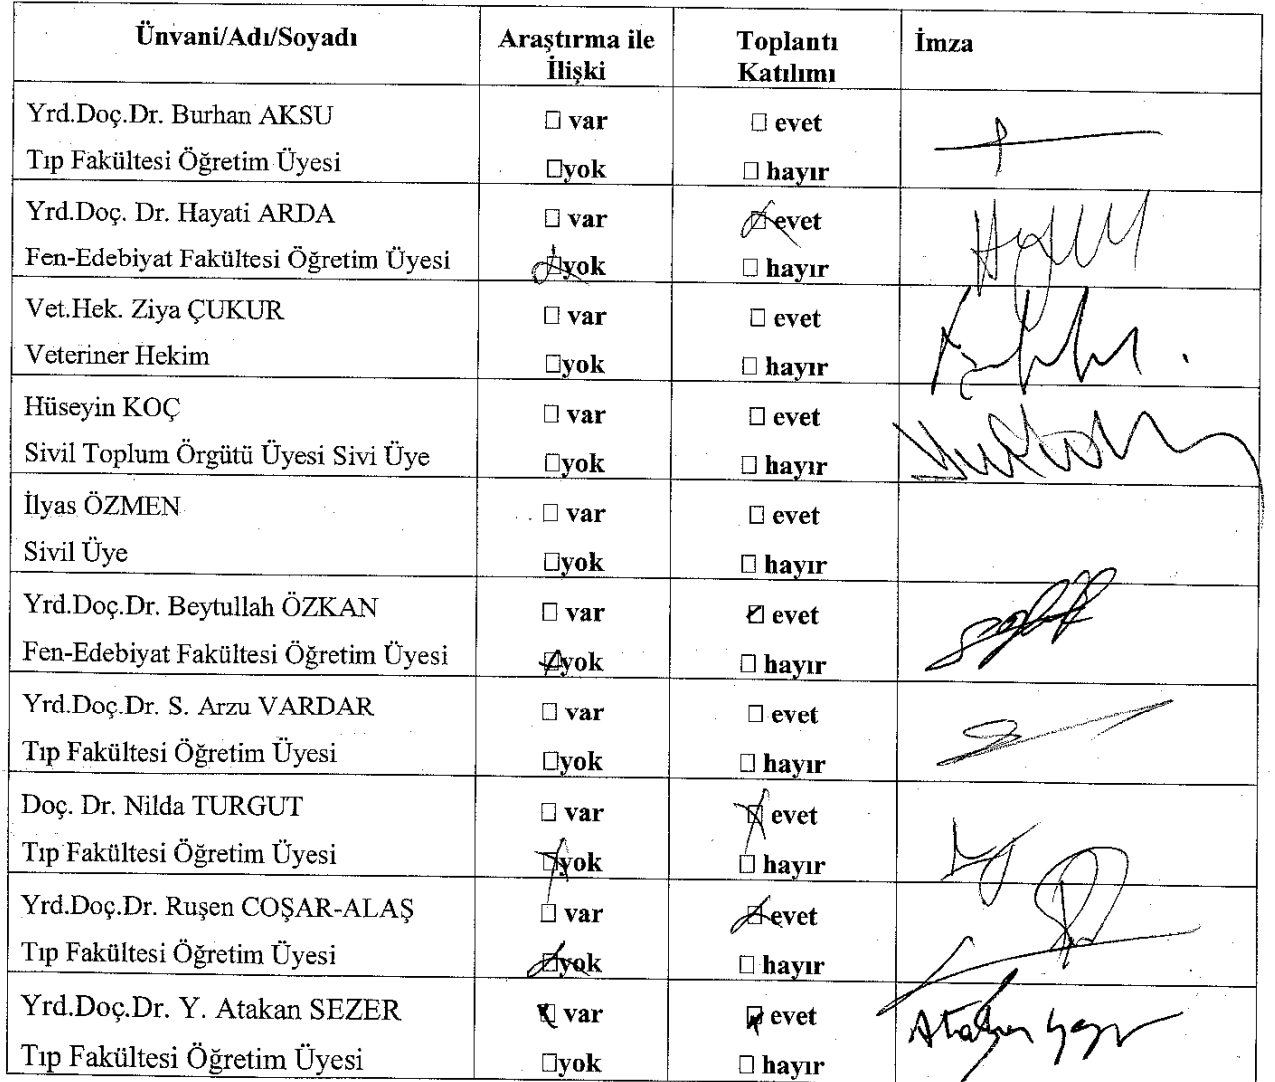 Ünvani/Adı/Soyadı
Araştırma ile
İlişki
Toplantı
Katılımı
İmza
Yrd.Doç.Dr. Burhan AKSU
Tıp Fakültesi Öğretim Üyesi
☐ var
☐yok
☐ evet
☐ hayır
Yrd.Doç. Dr. Hayati ARDA
Fen-Edebiyat Fakültesi Öğretim Üyesi
☐ var
☒yok
☒evet
☐ hayır
Vet.Hek. Ziya ÇUKUR
Veteriner Hekim
☐ var
☐yok
☐ evet
☐ hayır
Hüseyin KOÇ
Sivil Toplum Örgütü Üyesi Sivi Üye
☐ var
☐yok
☐ evet
☐ hayır
İlyas ÖZMEN
Sivil Üye
☐ var
☐yok
☐ evet
☐ hayır
Yrd.Doç.Dr. Beytullah ÖZKAN
Fen-Edebiyat Fakültesi Öğretim Üyesi
☐ var
☒yok
☒ evet
☐ hayır
Yrd.Doç.Dr. S. Arzu VARDAR
Tıp Fakültesi Öğretim Üyesi
☐ var
☐yok
☐ evet
☐ hayır
Doç. Dr. Nilda TURGUT
Tıp Fakültesi Öğretim Üyesi
☐ var
☒yok
☒ evet
☐ hayır
Yrd.Doç.Dr. Ruşen COŞAR-ALAŞ
Tıp Fakültesi Öğretim Üyesi
☐ var
☒yok
☒evet
☐ hayır
Yrd.Doç.Dr. Y. Atakan SEZER
Tıp Fakültesi Öğretim Üyesi
☒ var
☐yok
☒ evet
☐ hayır